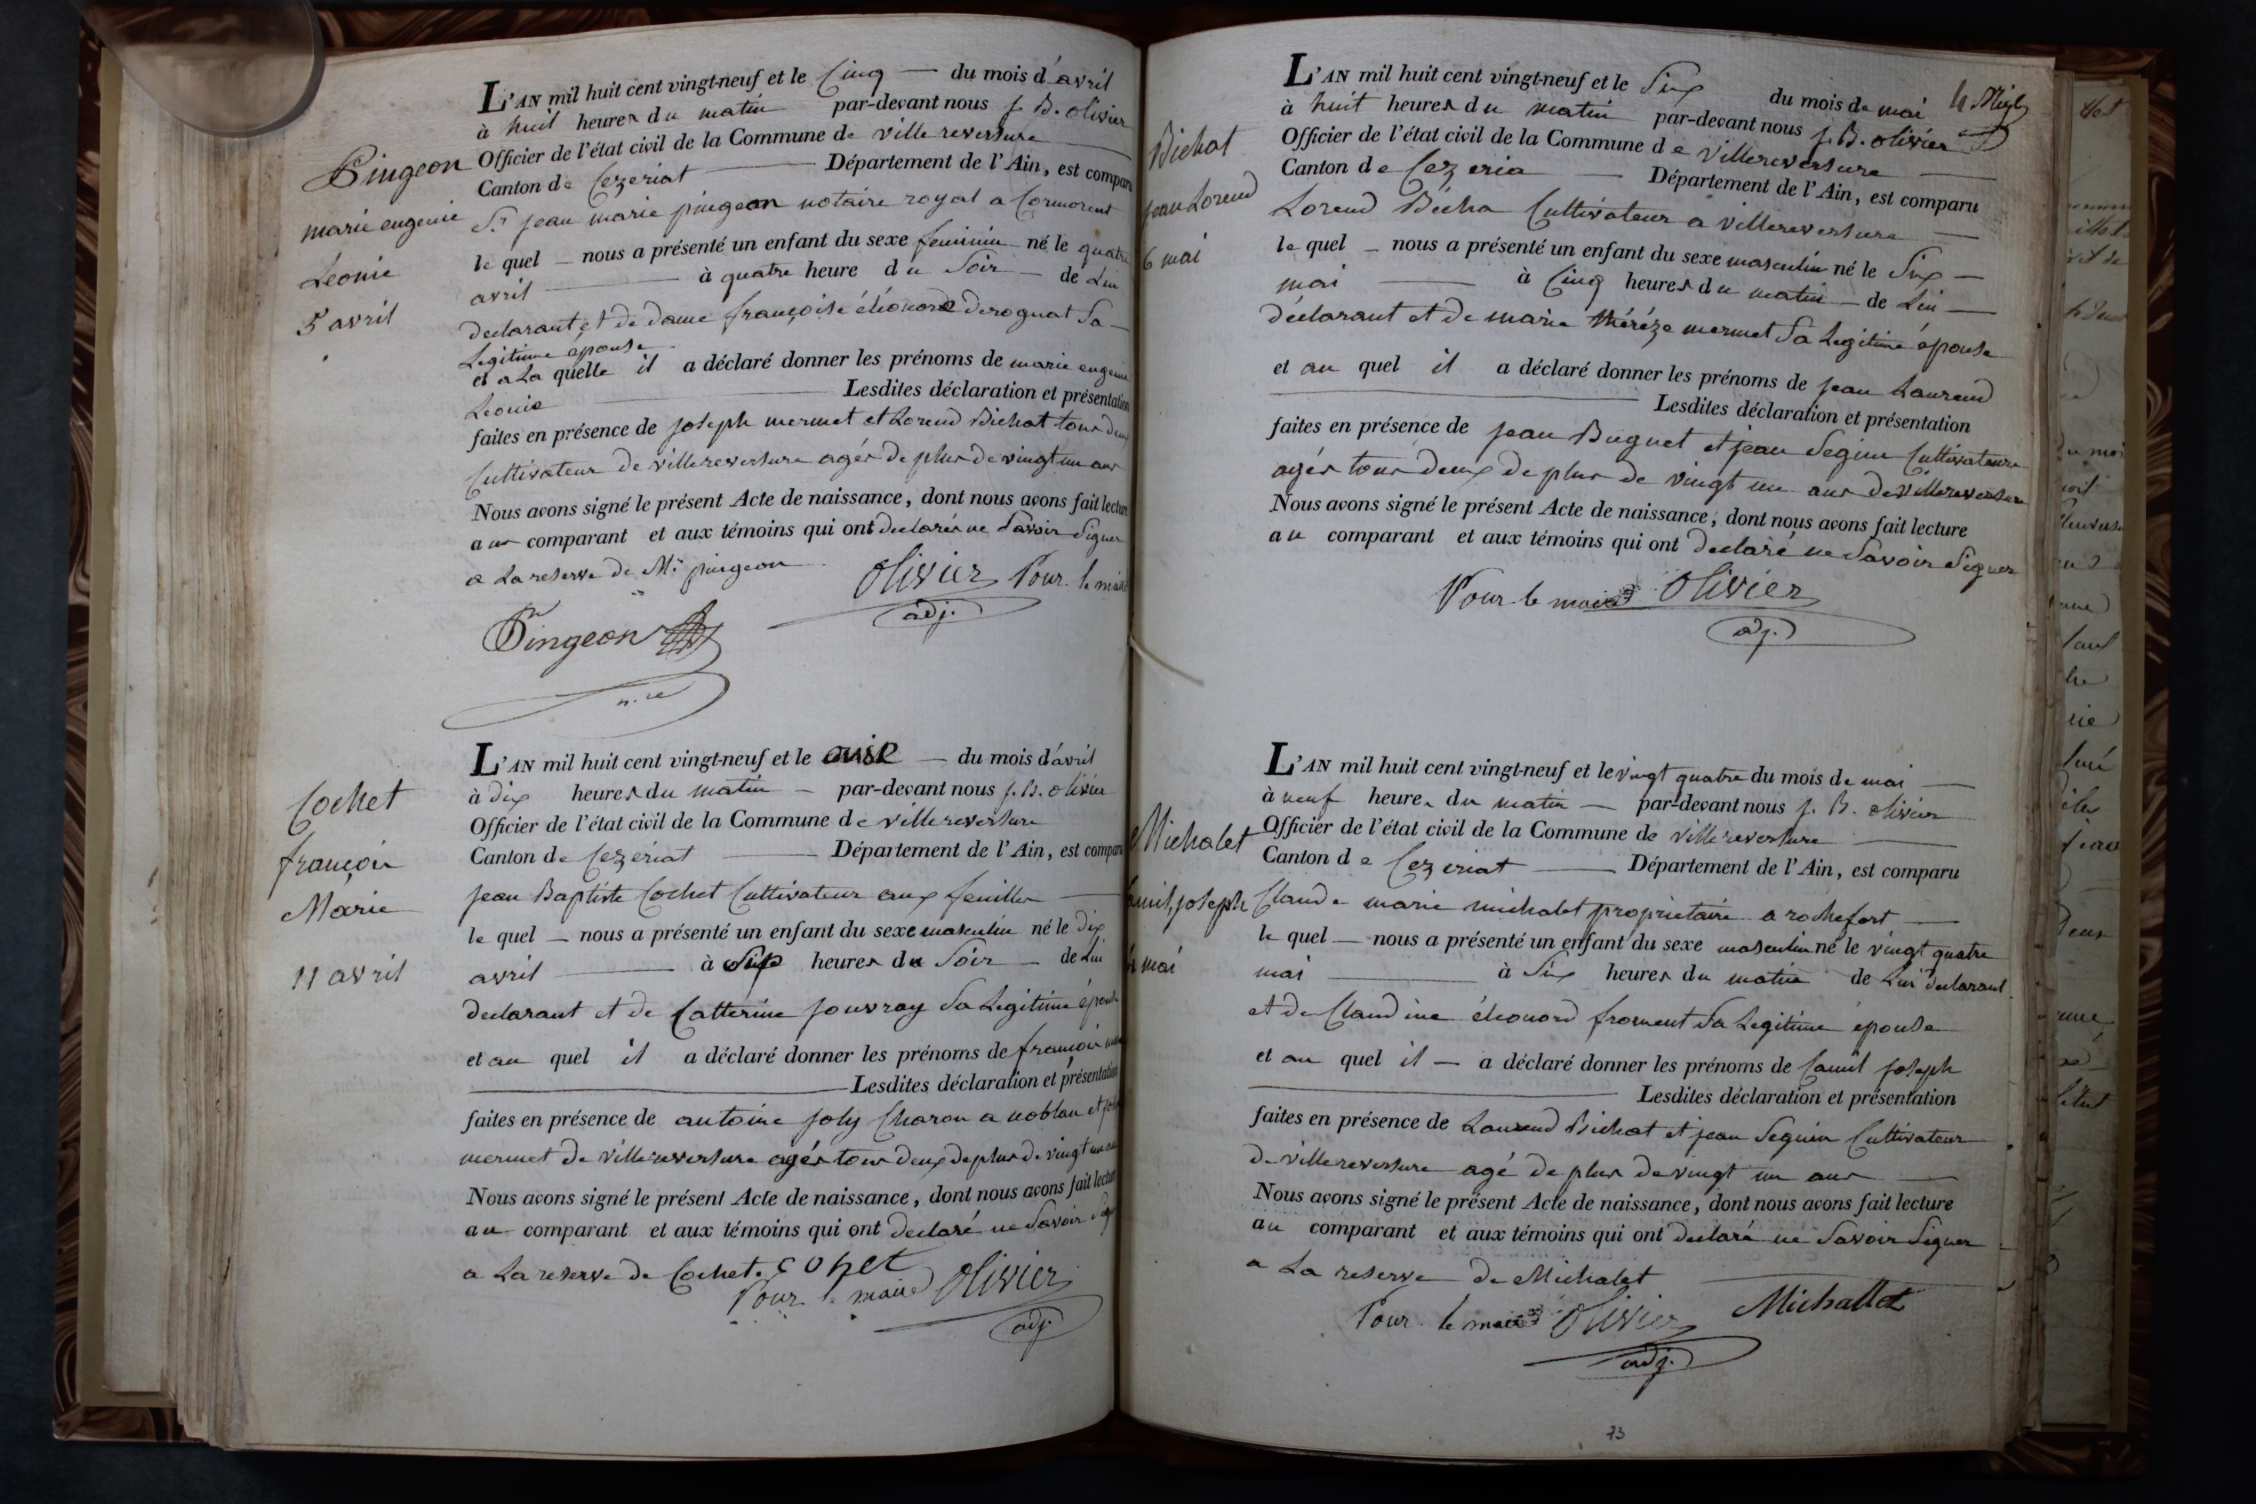 Pingeon
marie eugenie
Léonie
5 avril
L'AN mil huit cent vingt-neuf et le Cinq — du mois d'avril
à huit heures du matin par-devant nous J. B. olivier
Officier de l'état civil de la Commune de villereversure
Canton de Cezeriat — Département de l'Ain, est comparu
Sr. jean marie pingeon notaire royal a Cormorent
le quel — nous a présenté un enfant du sexe feminin né le quatre
avril — à quatre heure du Soir — de Lui
declarant et de dame françoise éléonore derognat Sa —
Legitime épouse
et a La quelle il a déclaré donner les prénoms de marie eugenie
Leonie — Lesdites déclaration et présentation
faites en présence de joseph mermet et Lorend Bichat tous deux
Cultivateur de villereversure agés de plus de vingt un ans
Nous avons signé le présent Acte de naissance, dont nous avons fait lecture
au comparant et aux témoins qui ont declarés ne Savoir Signer
a La reserve de Mr. pingeon
Olivier Pour le maire
adj.
Pingeon
n.re
Cochet
françois
Marie
11 avril
L'AN mil huit cent vingt-neuf et le onise — du mois d'avril
à dix heures du matin — par-devant nous J. B. olivier
Officier de l'état civil de la Commune de villereversure
Canton de Cezériat — Département de l'Ain, est comparu
jean Baptiste Cochet Cultivateur aux feuilles —
le quel — nous a présenté un enfant du sexe masculin né le dix
avril — à Six heures du Soir — de Lui
declarant et de Catterine jouvray Sa Legitime épouse
et au quel il a déclaré donner les prénoms de françois
— Lesdites déclaration et présentation
faites en présence de antoine joly Charon a noblau et
mermet de villereversure agés tous deux de plus de vingt un ans
Nous avons signé le présent Acte de naissance, dont nous avons fait lecture
au comparant et aux témoins qui ont declaré ne Savoir
a La reserve de Cochet. cohet
Pour le maire Olivier
adj.
Bichat
jean Lorend
6 mai
L'AN mil huit cent vingt-neuf et le Six du mois de mai
à huit heures du matin par-devant nous J. B. olivier
Officier de l'état civil de la Commune de villereversure —
Canton de Cezeria — Département de l'Ain, est comparu
Lorend Bécha Cultivateur a villereversure —
le quel — nous a présenté un enfant du sexe masculin né le Six —
mai — à Cinq heures du matin — de Lui —
déclarant et de marie thérèze mermet Sa Legitime épouse
et au quel il a déclaré donner les prénoms de jean Laurend
— Lesdites déclaration et présentation
faites en présence de jean Buguet et jean Seguin Cultivateurs
agés tous deux de plus de vingt un ans de villereversure
Nous avons signé le présent Acte de naissance, dont nous avons fait lecture
au comparant et aux témoins qui ont declaré ne Savoir Signer
Pour le maire Olivier
adj.
Michalet
joseph
mai
L'AN mil huit cent vingt-neuf et le vingt quatre du mois de mai —
à neuf heures du matin — par-devant nous J. B. olivier
Officier de l'état civil de la Commune de villereversure —
Canton de Cezeriat — Département de l'Ain, est comparu
Claude marie michalet proprietaire a rochefort —
le quel — nous a présenté un enfant du sexe masculin né le vingt quatre
mai — à Six heures du matin de Lui declarant
et de Claudine éléonord froment Sa Legitime épouse
et au quel il — a déclaré donner les prénoms de Camil joseph
— Lesdites déclaration et présentation
faites en présence de Laurend Bichat et jean Seguin Cultivateur
de villereversure agé de plus de vingt un ans —
Nous avons signé le présent Acte de naissance, dont nous avons fait lecture
au comparant et aux témoins qui ont declaré ne Savoir Signer
a La reserve de Michalet
Pour le maire Olivier Michallet
adj.
73